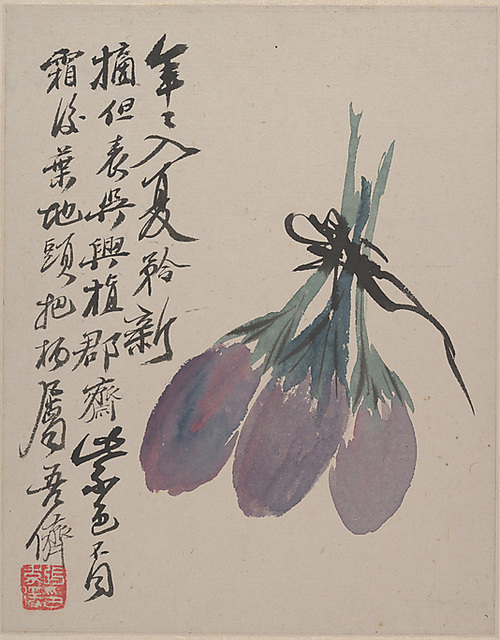 年〻入夏矜新
摘但表與興植郡齋紫色不同
霜後葉地頭把柄屬吾儕